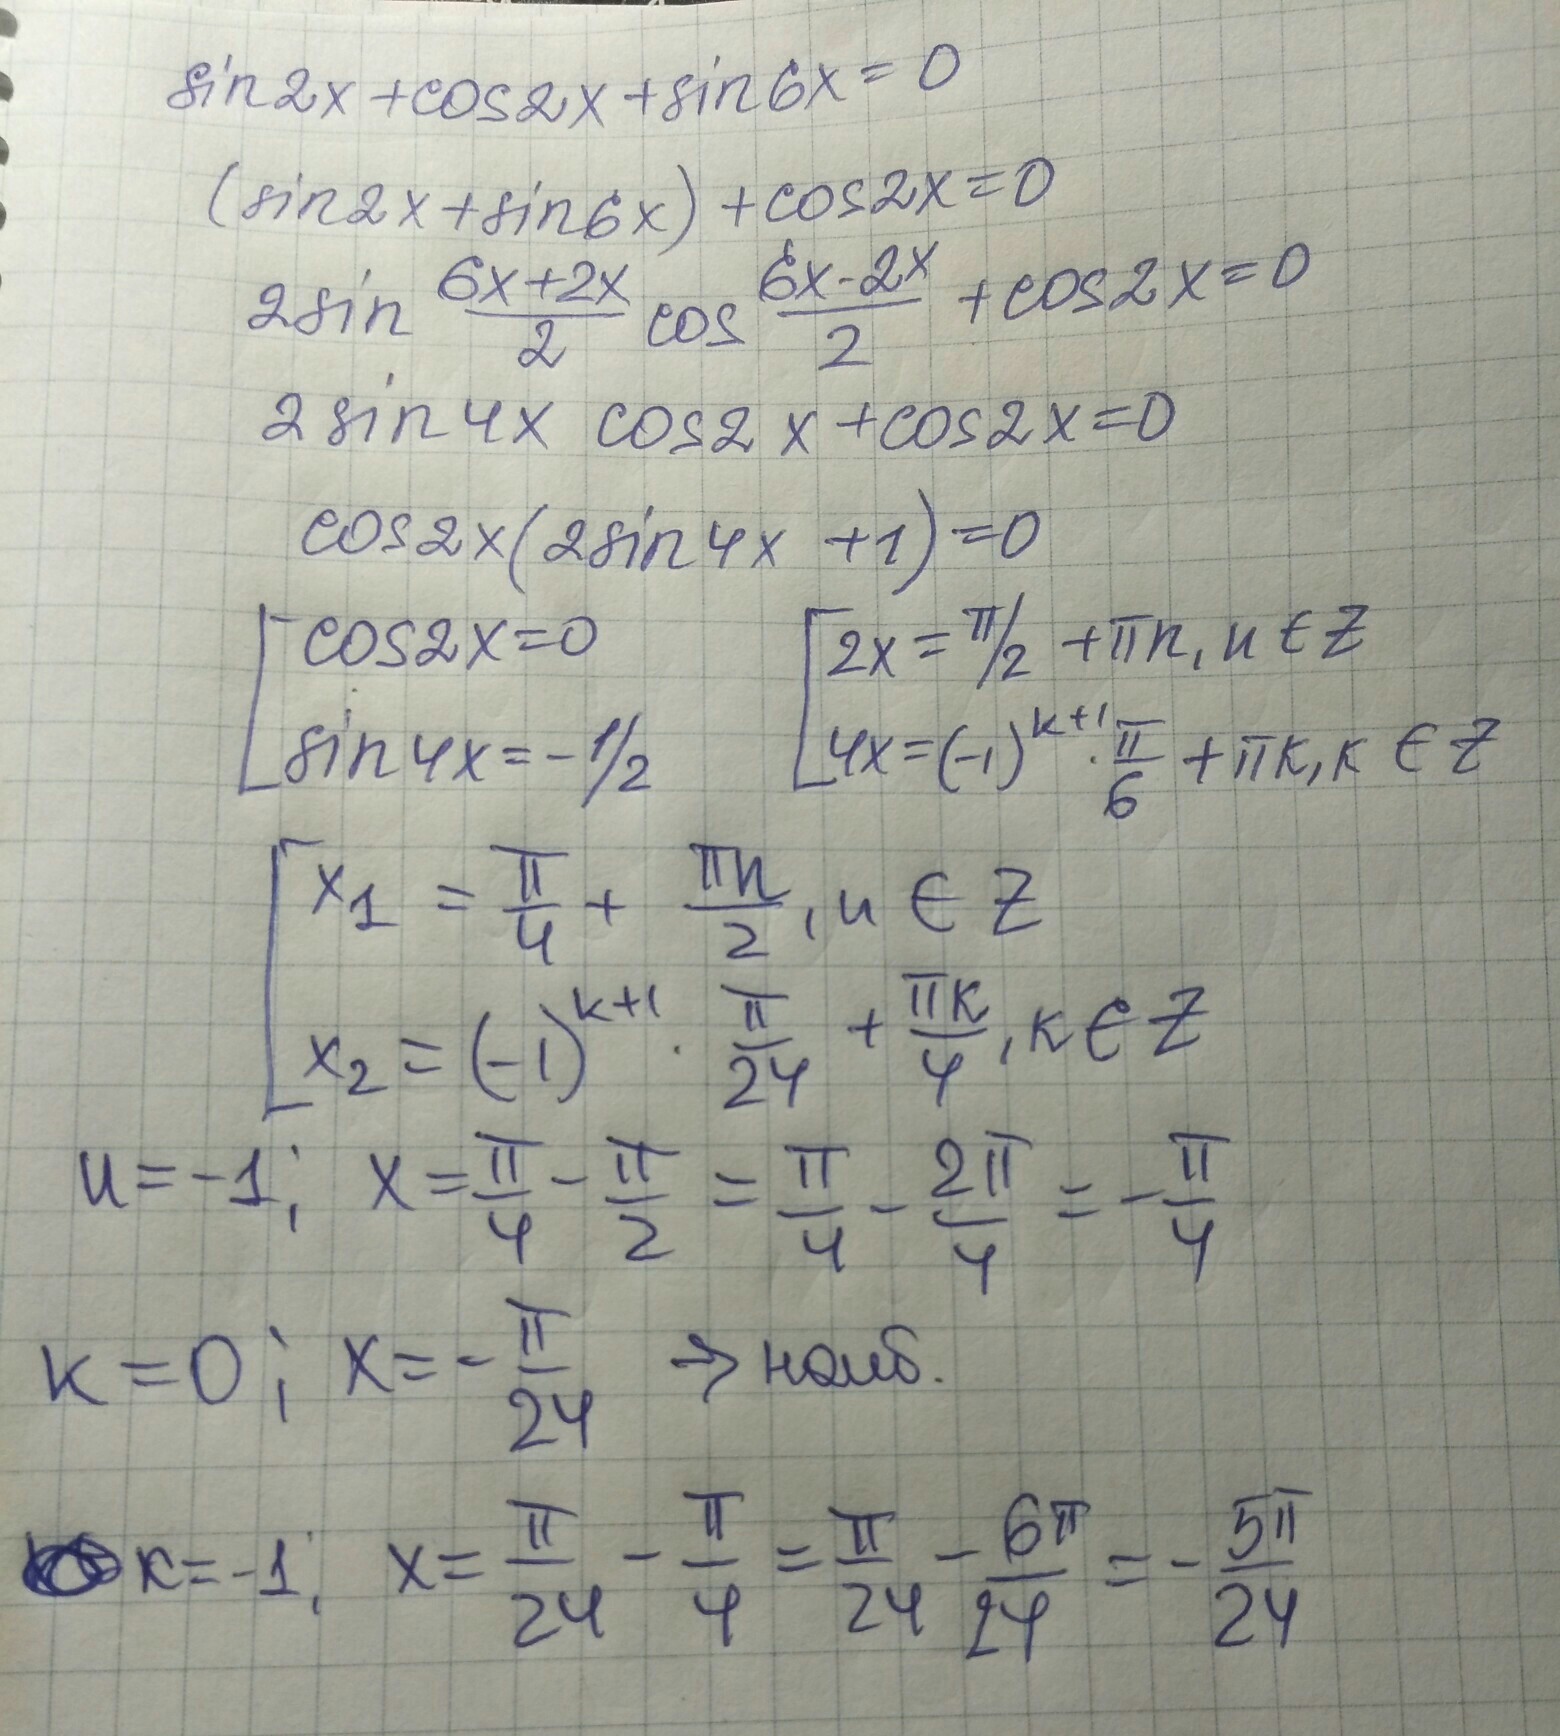 sin2x+cos2x+sin6x=0
(sin2x+sin6x)+cos2x=0
2sin (6x+2x)/2 cos (6x-2x)/2 +cos2x=0
2sin4x cos2x+cos2x=0
cos2x(2sin4x +1)=0
[cos2x=0 [2x=π/2 +πn, n∈Z
sin4x=-1/2 4x=(-1)^(k+1)·π/6 +πk, k∈Z
[x₁ = π/4 + πn/2, n∈Z
x₂=(-1)^(k+1)·π/24 + πk/4, k∈Z
n=-1; x=π/4-π/2 = π/4-2π/4 = -π/4
k=0; x=-π/24 → наиб.
k=-1; x=π/24-π/4=π/24-6π/24=-5π/24